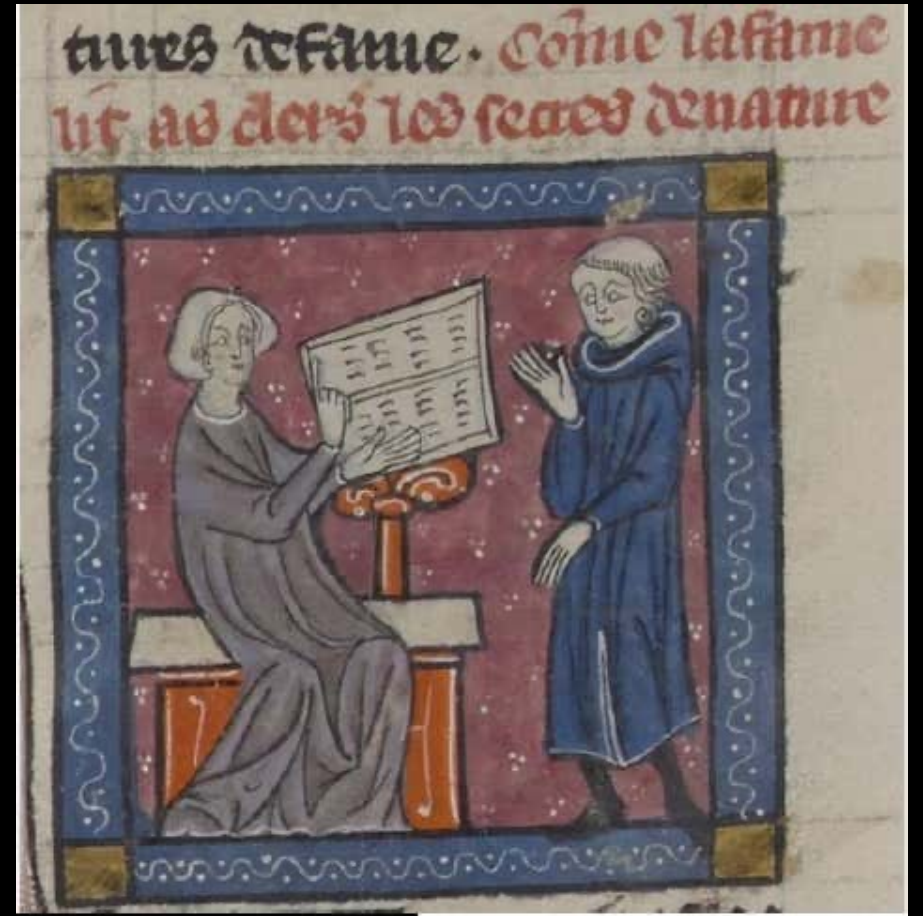 tures defame. Cōme lafame
lit as clers les secres denature